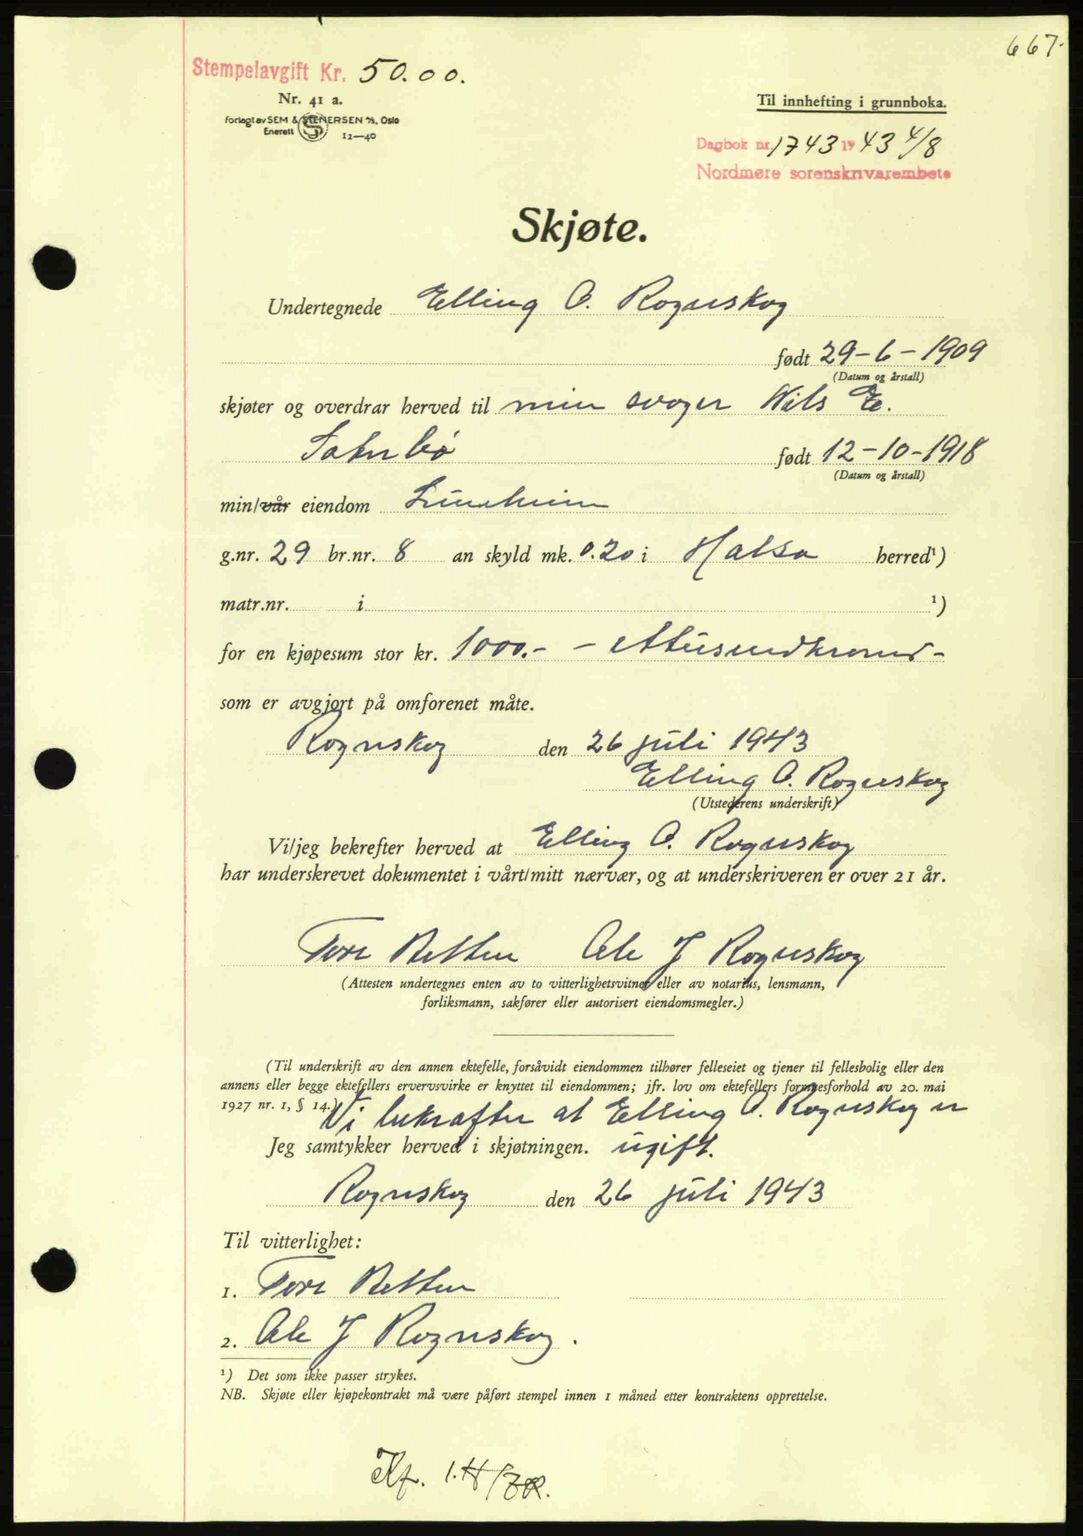 667.
Stempelavgift Kr. 50.00.
Nr. 41 a.
Forlagt av SEM & STENERSEN A/S, Oslo
Enerett 12—40
Til innhefting i grunnboka.
Dagbok nr. 1743 1943 4/8
Nordmøre sorenskrivarembete
Skjøte.
Undertegnede Elling O. Rognskog
født 29-6-1909
(Datum og årstall)
skjøter og overdrar herved til min svoger Nils E.
født 12-10-1918
(Datum og årstall)
min/vår eiendom
g.nr. 29 br.nr. 8 an skyld mk. 0.20 i Halsa herred¹)
matr.nr. i ¹)
for en kjøpesum stor kr. 1000.- - ettusundkroner -
som er avgjort på omforenet måte.
Rognskog den 26 juli 1943
Elling O. Rognskog
(Utstederens underskrift)
Vi/jeg bekrefter herved at Elling O. Rognskog
har underskrevet dokumentet i vårt/mitt nærvær, og at underskriveren er over 21 år.
Tore Betten Ole J Rognskog
(Attesten undertegnes enten av to vitterlighetsvitner eller av notarius, lensmann,
forliksmann, sakfører eller autorisert eiendomsmegler.)
(Til underskrift av den annen ektefelle, forsåvidt eiendommen tilhører felleseiet og tjener til fellesbolig eller den
annens eller begge ektefellers ervervsvirke er knyttet til eiendommen; jfr. lov om ektefellers formuesforhold av 20. mai
1927 nr. 1, § 14.) Vi bekrefter at Elling O. Rognskog er
Jeg samtykker herved i skjøtningen. ugift.
Rognskog den 26 juli 1943
Til vitterlighet:
1. Tore Betten
2. Ole J Rognskog.
¹) Det som ikke passer strykes.
NB. Skjøte eller kjøpekontrakt må være påført stempel innen 1 måned etter kontraktens opprettelse.